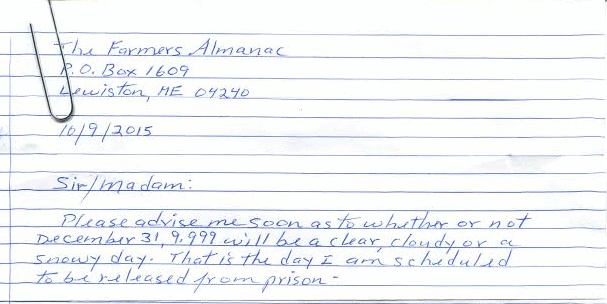 The Farmers Almanac
P.O. Box 1609
Lewiston, ME 04240
10/9/2015
Sir/madam:
Please advise me soon as to whether or not
December 31, 9,999 will be a clear, cloudy or a
snowy day. That is the day I am scheduled
to be released from prison-